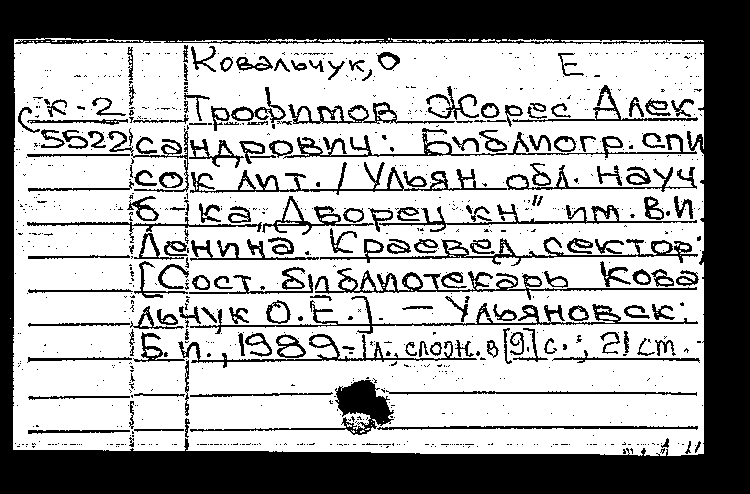 Ковальчук, О Е.
К-2 Трофимов Жорес Алек-
С 5522 сандрович: Библиогр. спи
сок лит. / Ульян. обл. науч.
б-ка „Дворец кн." им. В.И.
Ленина. Краевед. сектор;
[Сост. библиотекарь Кова
льчук О.Е.]. — Ульяновск:
Б. и., 1989-1л., слож. в [9.] с.; 21 см.